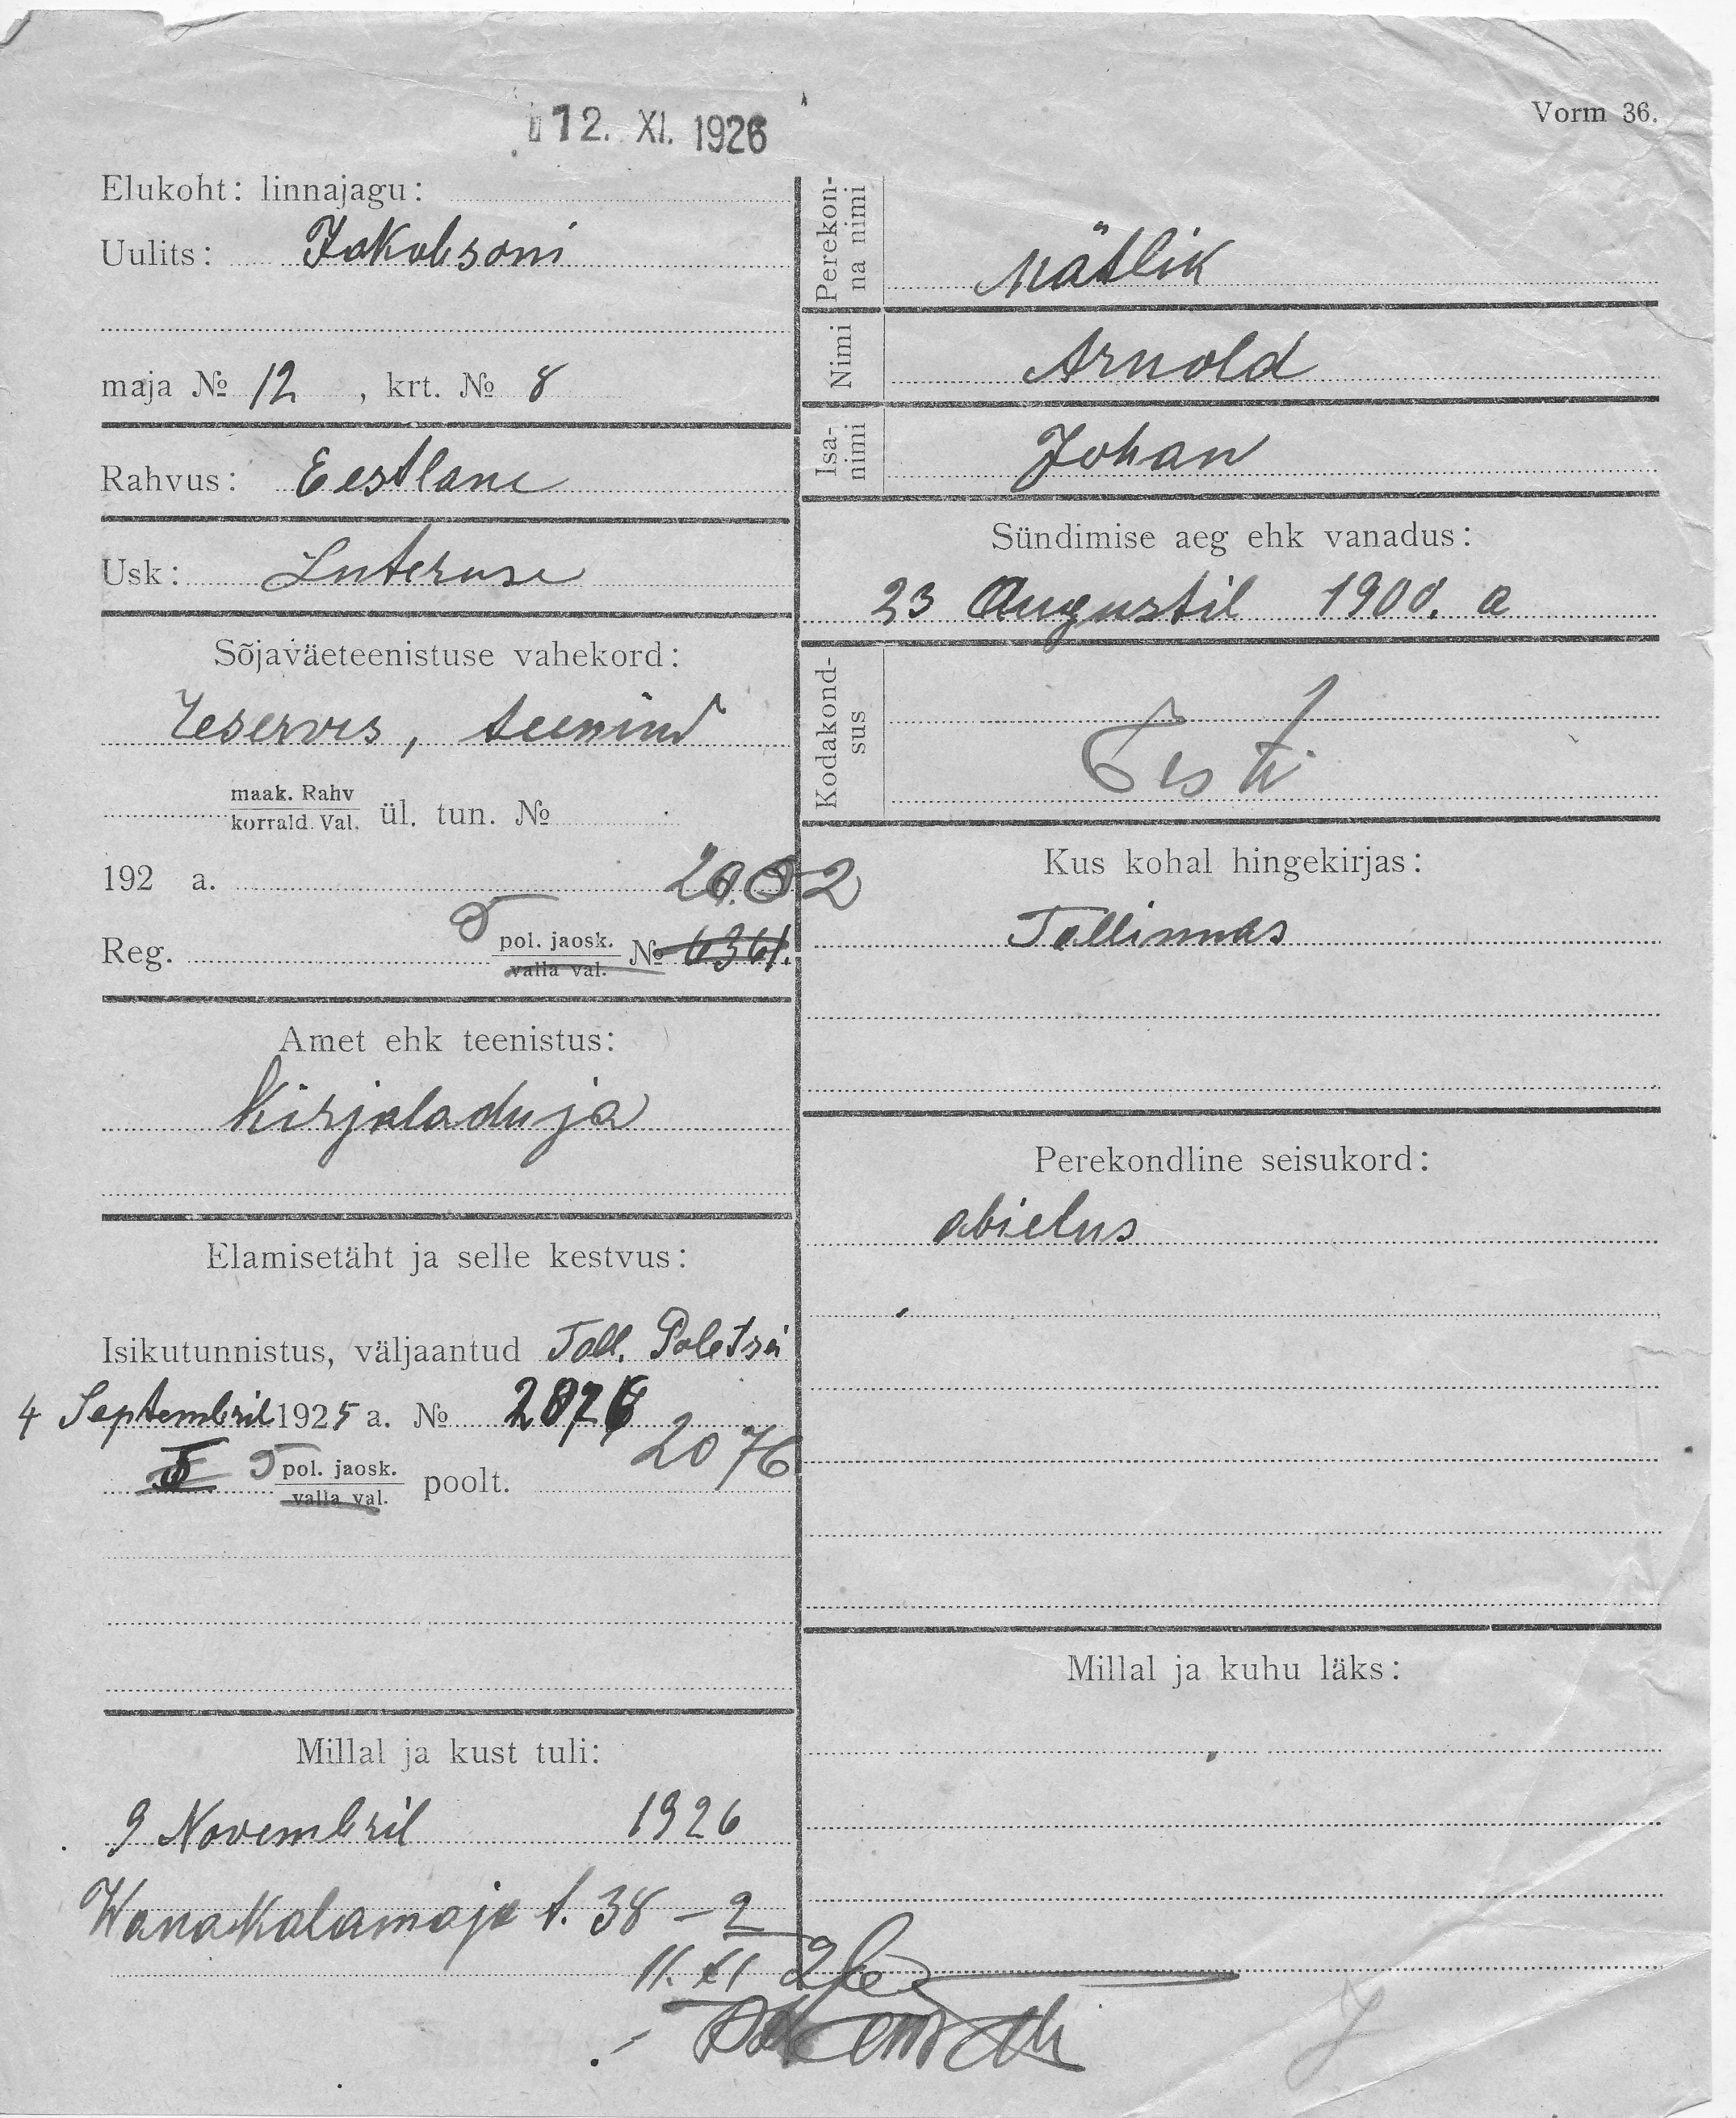 12. XI. 1926
Vorm 36.
Elukoht: linnajagu:
Uulits: Jakobsoni
maja № 12, krt. № 8
Rahvus: Eestlane
Usk: Luteruse
Sõjaväeteenistuse vahekord:
reservis, teenind
maak. Rahv
korrald. Val. ül. tun. №
192 a.
2002
Reg. 5 pol. jaosk. № 6361.
valla val.
Amet ehk teenistus:
Kirjaladuja
Elamisetäht ja selle kestvus:
Isikutunnistus, väljaantud Tall. Poletsei
4 Septembril 1925 a. № 2876
2076
5 pol. jaosk. poolt.
valla val.
Millal ja kust tuli:
9 Novembril 1926
Wana Kalamaja t. 38 – 2
11. XI 26
Perekon-
na nimi
Mätlik
Nimi
Arnold
Isa-
nimi
Johan
Sündimise aeg ehk vanadus:
23 Augustil 1900. a
Kodakond-
sus
Eesti
Kus kohal hingekirjas:
Tallinnas
Perekondline seisukord:
abielus
Millal ja kuhu läks: